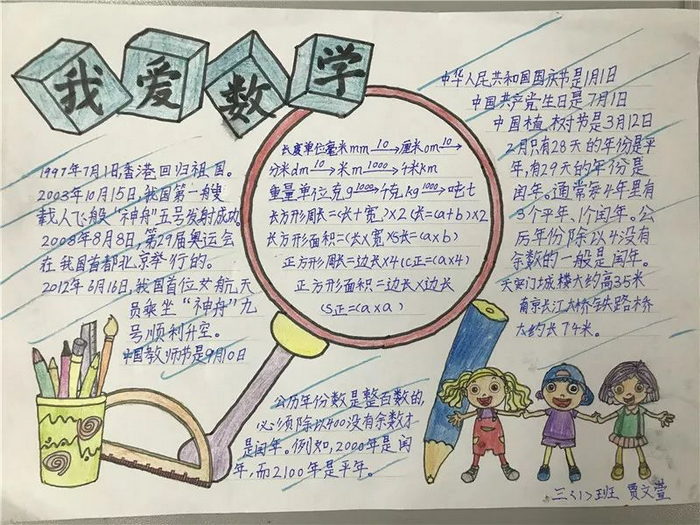 我爱数学
1997年7月1日,香港回归祖国。
2003年10月15日,我国第一艘
载人飞船“神舟”五号发射成功。
2008年8月8日,第29届奥运会
在我国首都北京举行的。
2012年6月16日,我国首位女航天
员乘坐“神舟”九
号顺利升空。
中国教师节是9月10日
长度单位毫米mm 10→厘米cm 10→
分米dm 10→米m 1000→千米km
重量单位克g 1000→千克kg 1000→吨t
长方形周长=(长+宽)×2 C长=(a+b)×2
长方形面积=(长×宽)S长=(a×b)
正方形周长=边长×4(C正=(a×4)
正方形面积=边长×边长
(S正=(a×a)
中华人民共和国国庆节是1月1日
中国共产党生日是7月1日
中国植树节是3月12日
2月只有28天的年份是平
年,有29天的年份是
闰年。通常每4年里有
3个平年、1个闰年。公
历年份除以4没有
余数的一般是闰年。
天安门城楼大约高35米
南京长江大桥铁路桥
大约长74米。
公历年份数是整百数的,
必须除以400没有余数才
是闰年。例如,2000年是闰
年,而2100年是平年。
三〈1〉班 贾文萱